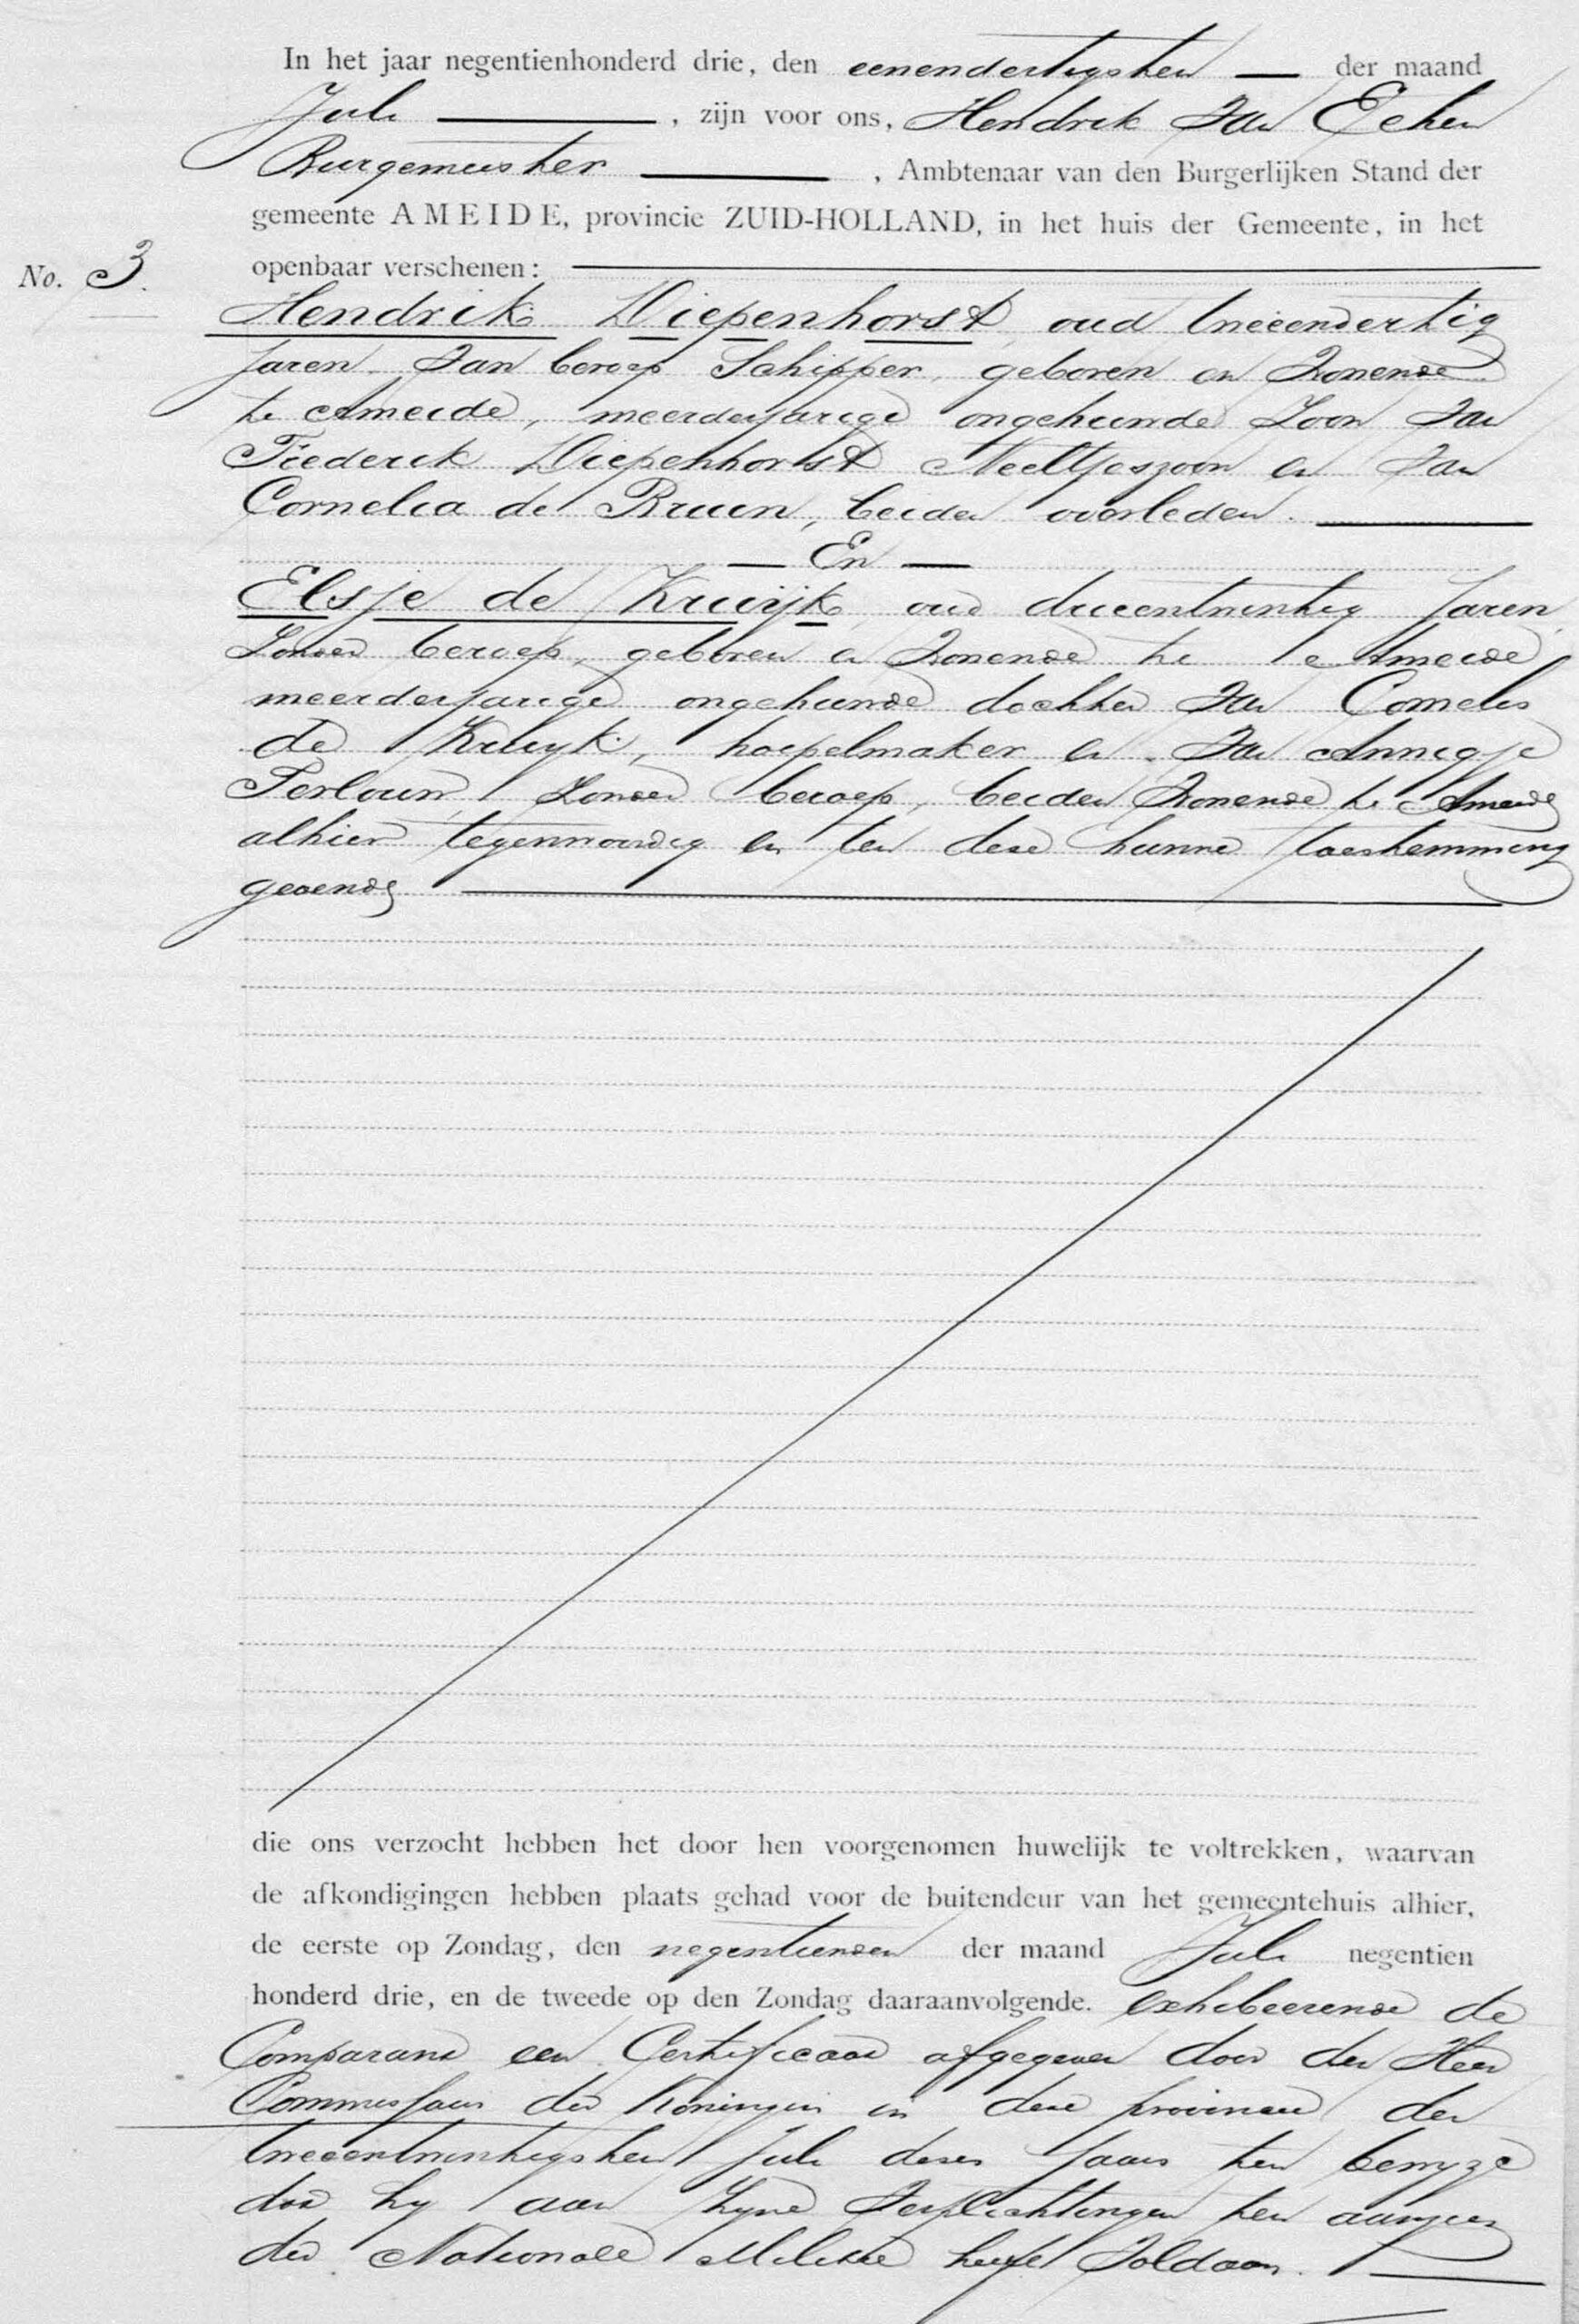 In het jaar negentienhonderd drie, den eenendertigsten — der maand
Juli —, zijn voor ons, Hendrik van Eeten
Burgemeester —, Ambtenaar van den Burgerlijken Stand der
gemeente AMEIDE, provincie ZUID-HOLLAND, in het huis der Gemeente, in het
No. 3. openbaar verschenen: —
Hendrik Diepenhorst, oud tweeendertig
jaren, van beroep Schipper, geboren en wonende
te Ameide, meerderjarige ongehuwde zoon van
Diederik Diepenhorst Neeltjeszoon en van
Cornelia de Bruin, beiden overleden. —
— En —
Elsje de Kruijk, oud drieentwintig jaren,
zonder beroep, geboren en wonende te Ameide
meerderjarige ongehuwde dochter van Cornelis
de Kruijk, hoepelmaker en van Annigje
Terlouw, zonder beroep, beiden wonende te Ameide
alhier tegenwoordig en ten deze hunne toestemming
gevende —
die ons verzocht hebben het door hen voorgenomen huwelijk te voltrekken, waarvan
de afkondigingen hebben plaats gehad voor de buitendeur van het gemeentehuis alhier,
de eerste op Zondag, den negentienden der maand Juli negentien
honderd drie, en de tweede op den Zondag daaraanvolgende. exhibeerende de
Comparant een Certificaat afgegeven door den Heer
Commissaris der Koningin in deze provincie den
tweeentwintigsten Juli dezes jaars ten bewyze
dat hy aan zyne verplichtingen ten aanzien
der Nationale Militie heeft voldaan. —